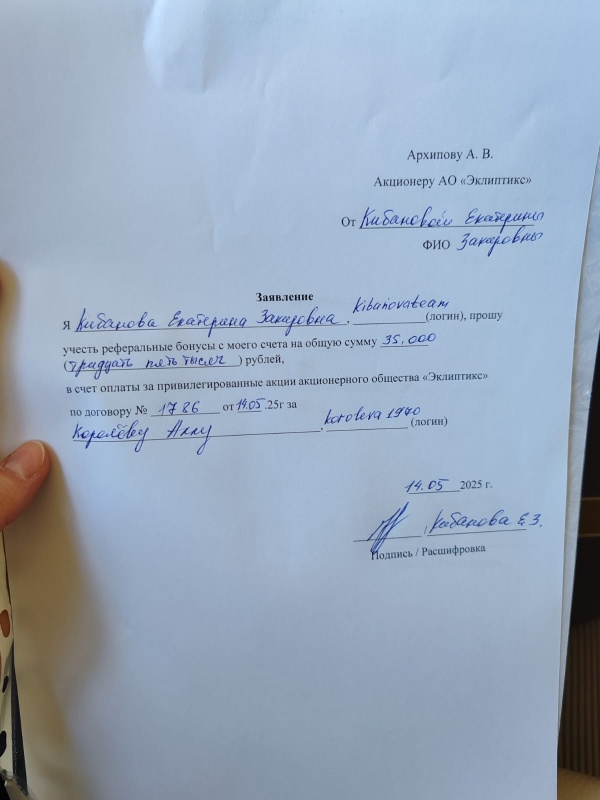 Архипову А. В.
Акционеру АО «Эклиптикс»
От Кибановой Екатерины
ФИО Закировны
Заявление
Я Кибанова Екатерина Закировна, kibanovateam (логин), прошу
учесть реферальные бонусы с моего счета на общую сумму 35.000
(тридцать пять тысяч) рублей,
в счет оплаты за привилегированные акции акционерного общества «Эклиптикс»
по договору № 1786 от 14.05.25г за
Королёву Аллу, koroleva1970 (логин)
14.05 2025 г.
Кибанова Е.З.
Подпись / Расшифровка